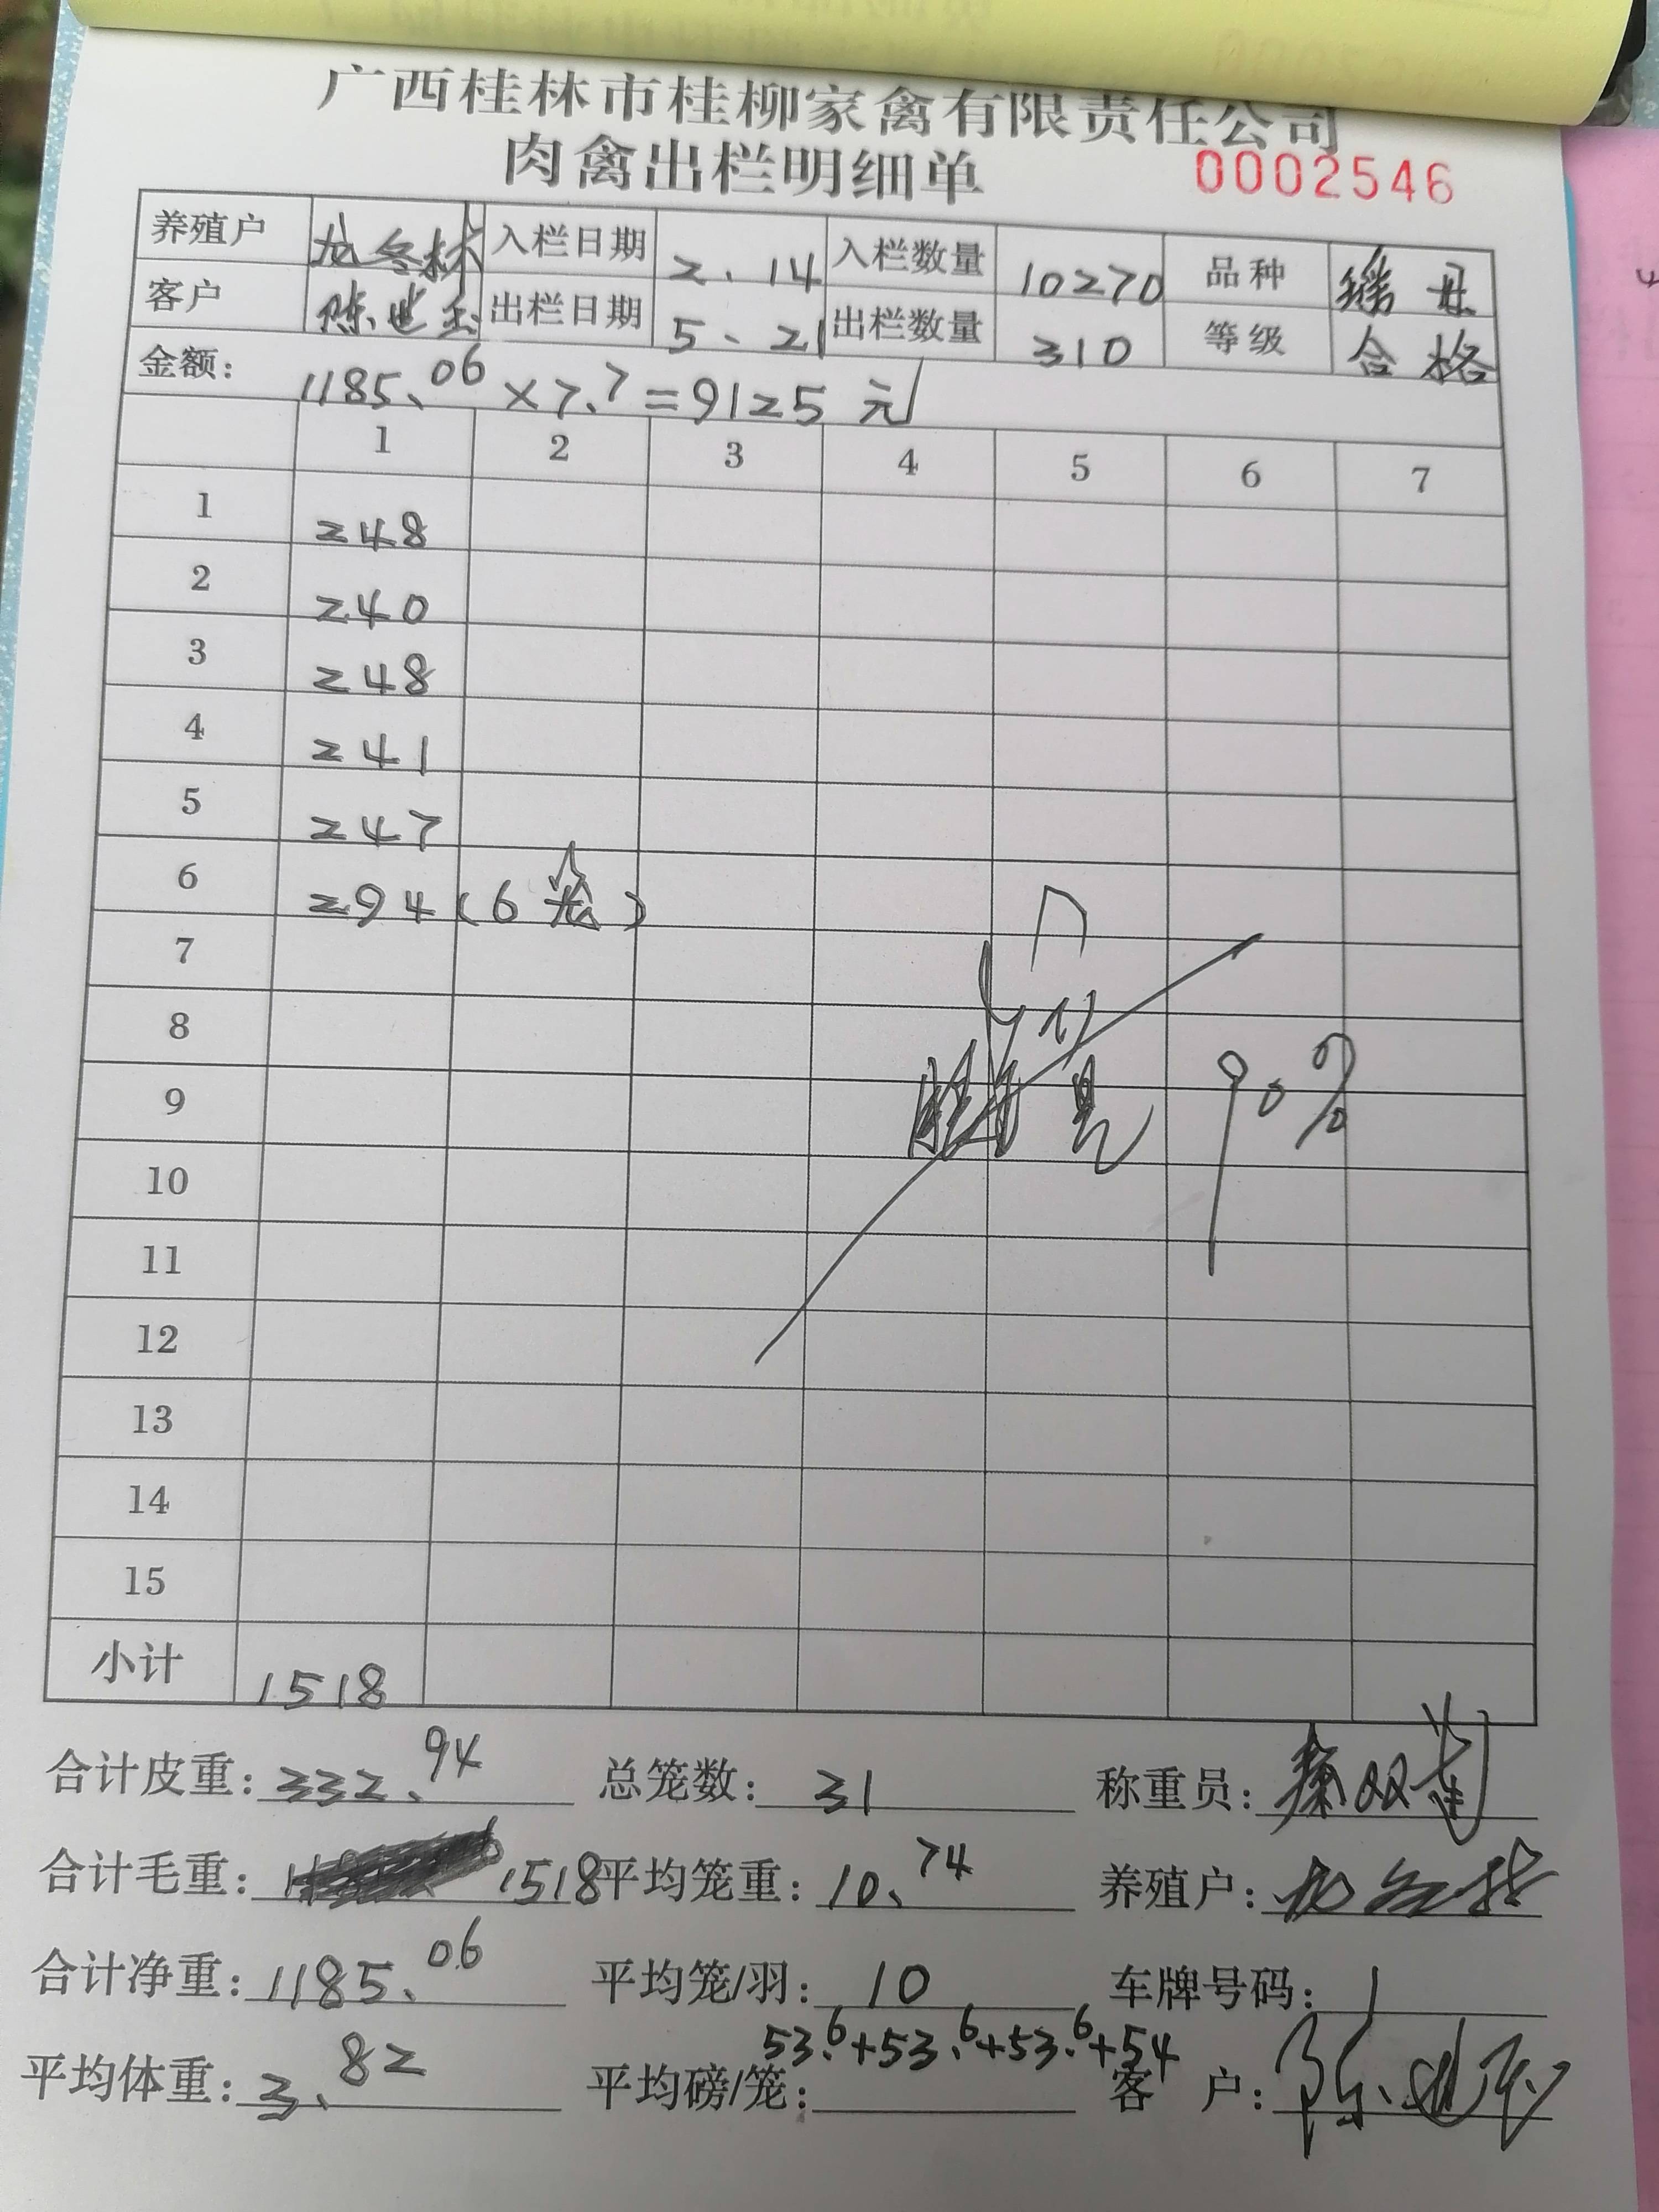 广西桂林市桂柳家禽有限责任公司
肉禽出栏明细单 0002546
养殖户 入栏日期 2.14 入栏数量 10270 品种
客户 陈世玉 出栏日期 5.21 出栏数量 310 等级 合格
金额: 1185.06×7.7=9125元
1 2 3 4 5 6 7
1 248
2 240
3 248
4 241
5 247
6 294(6笼)
7
8
9 90%
10
11
12
13
14
15
小计 1518
合计皮重: 332.94 总笼数: 31 称重员: 秦双
合计毛重: 1518 平均笼重: 10.74 养殖户:
合计净重: 1185.06 平均笼/羽: 10 车牌号码:
53.6+53.6+53.6+54
平均体重: 3.82 平均磅/笼: 客户: 陈世玉